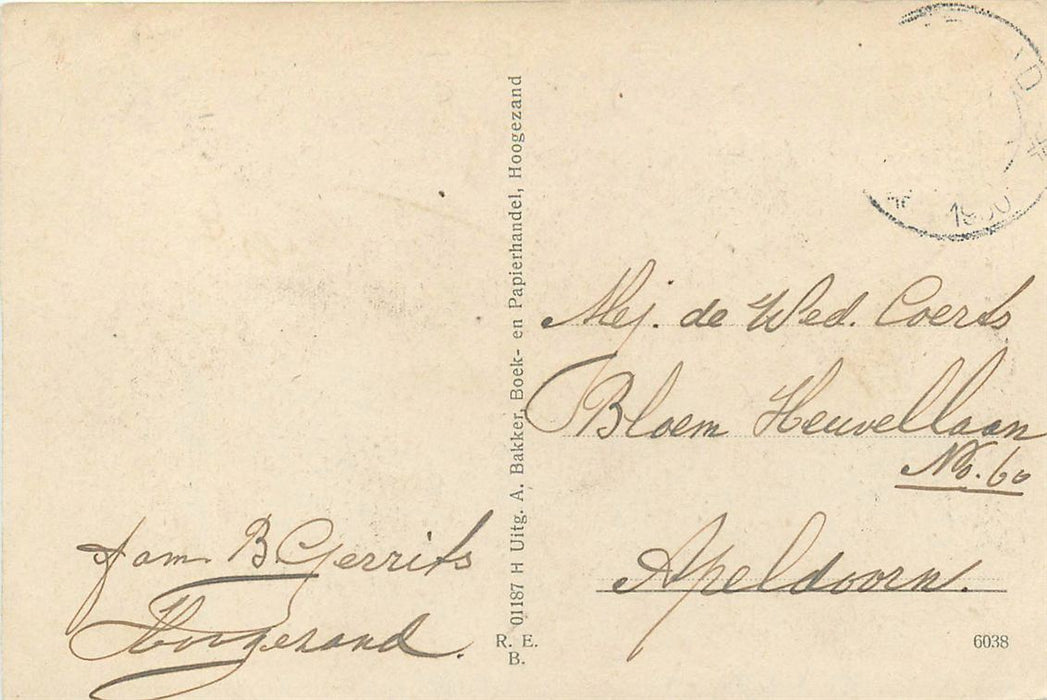 01187 H Uitg. A. Bakker, Boek- en Papierhandel, Hoogezand
Mej. de Wed. Coerts
Bloem Heuvellaan
No. 60
Apeldoorn.
fam B Gerrits
Hoogezand.
R. E.
B.
6038